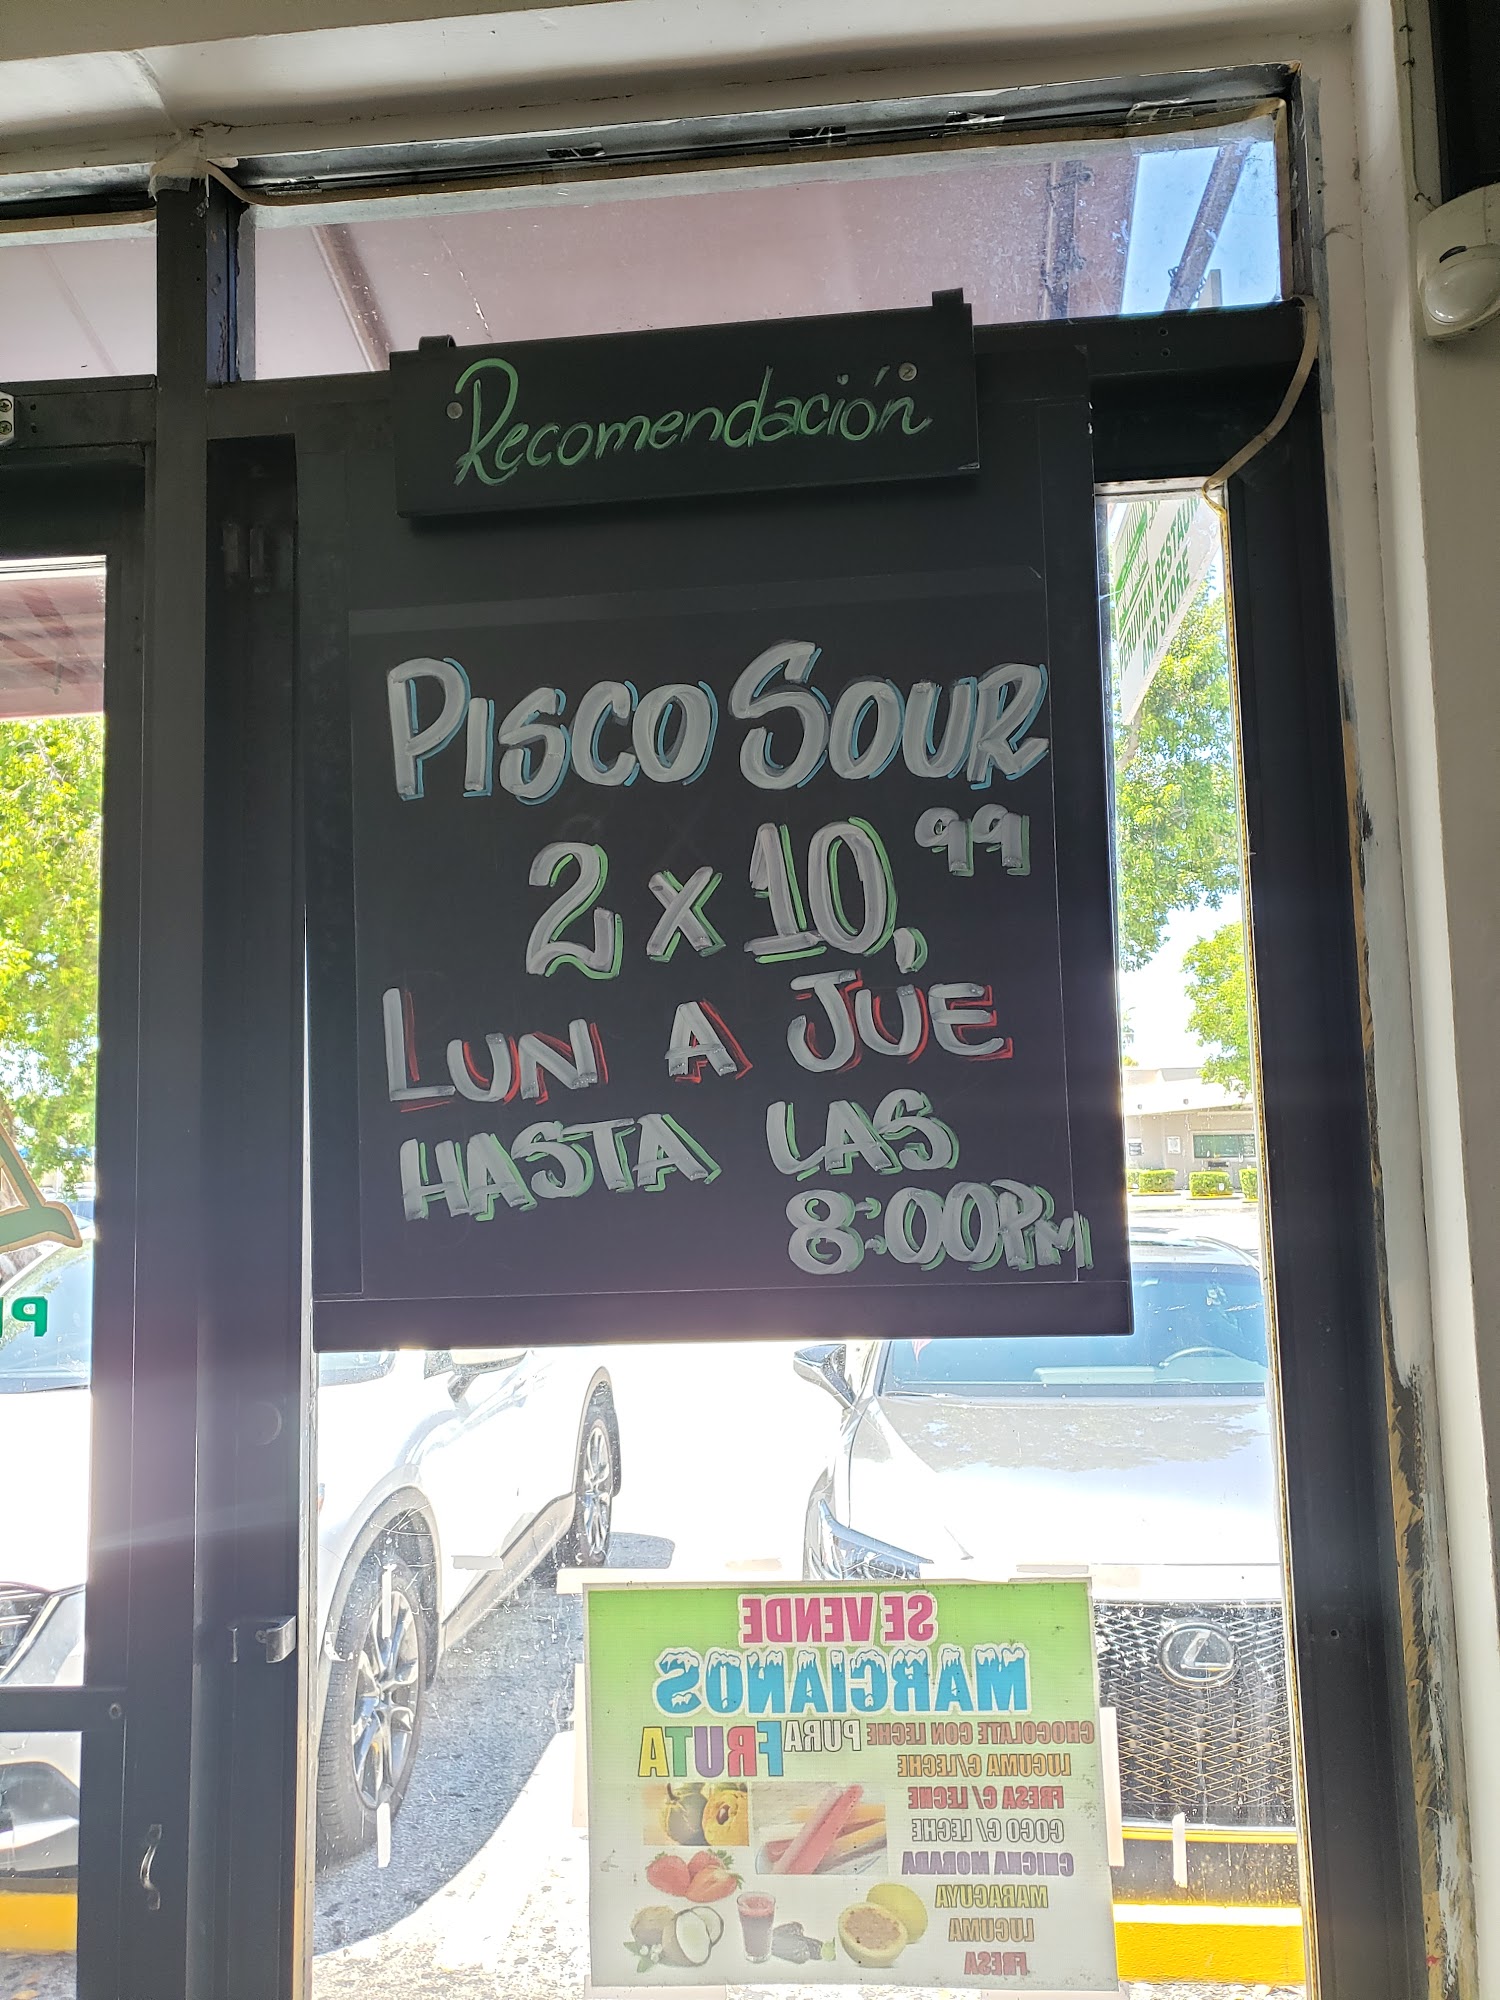 Recomendación
PISCO SOUR
2 x 10,99
LUN A JUE
HASTA LAS
8:00PM
PERUVIAN RESTAU
AND STORE
SE VENDE
MARCIANOS
CHOCOLATE CON LECHE PURA FRUTA
LUCUMA C/LECHE
FRESA C/LECHE
COCO C/LECHE
CHICHA MORADA
MARACUYA
LUCUMA
FRESA